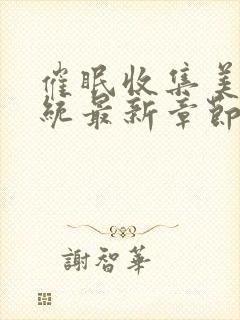 催眠收集美
統最新章節
謝智華